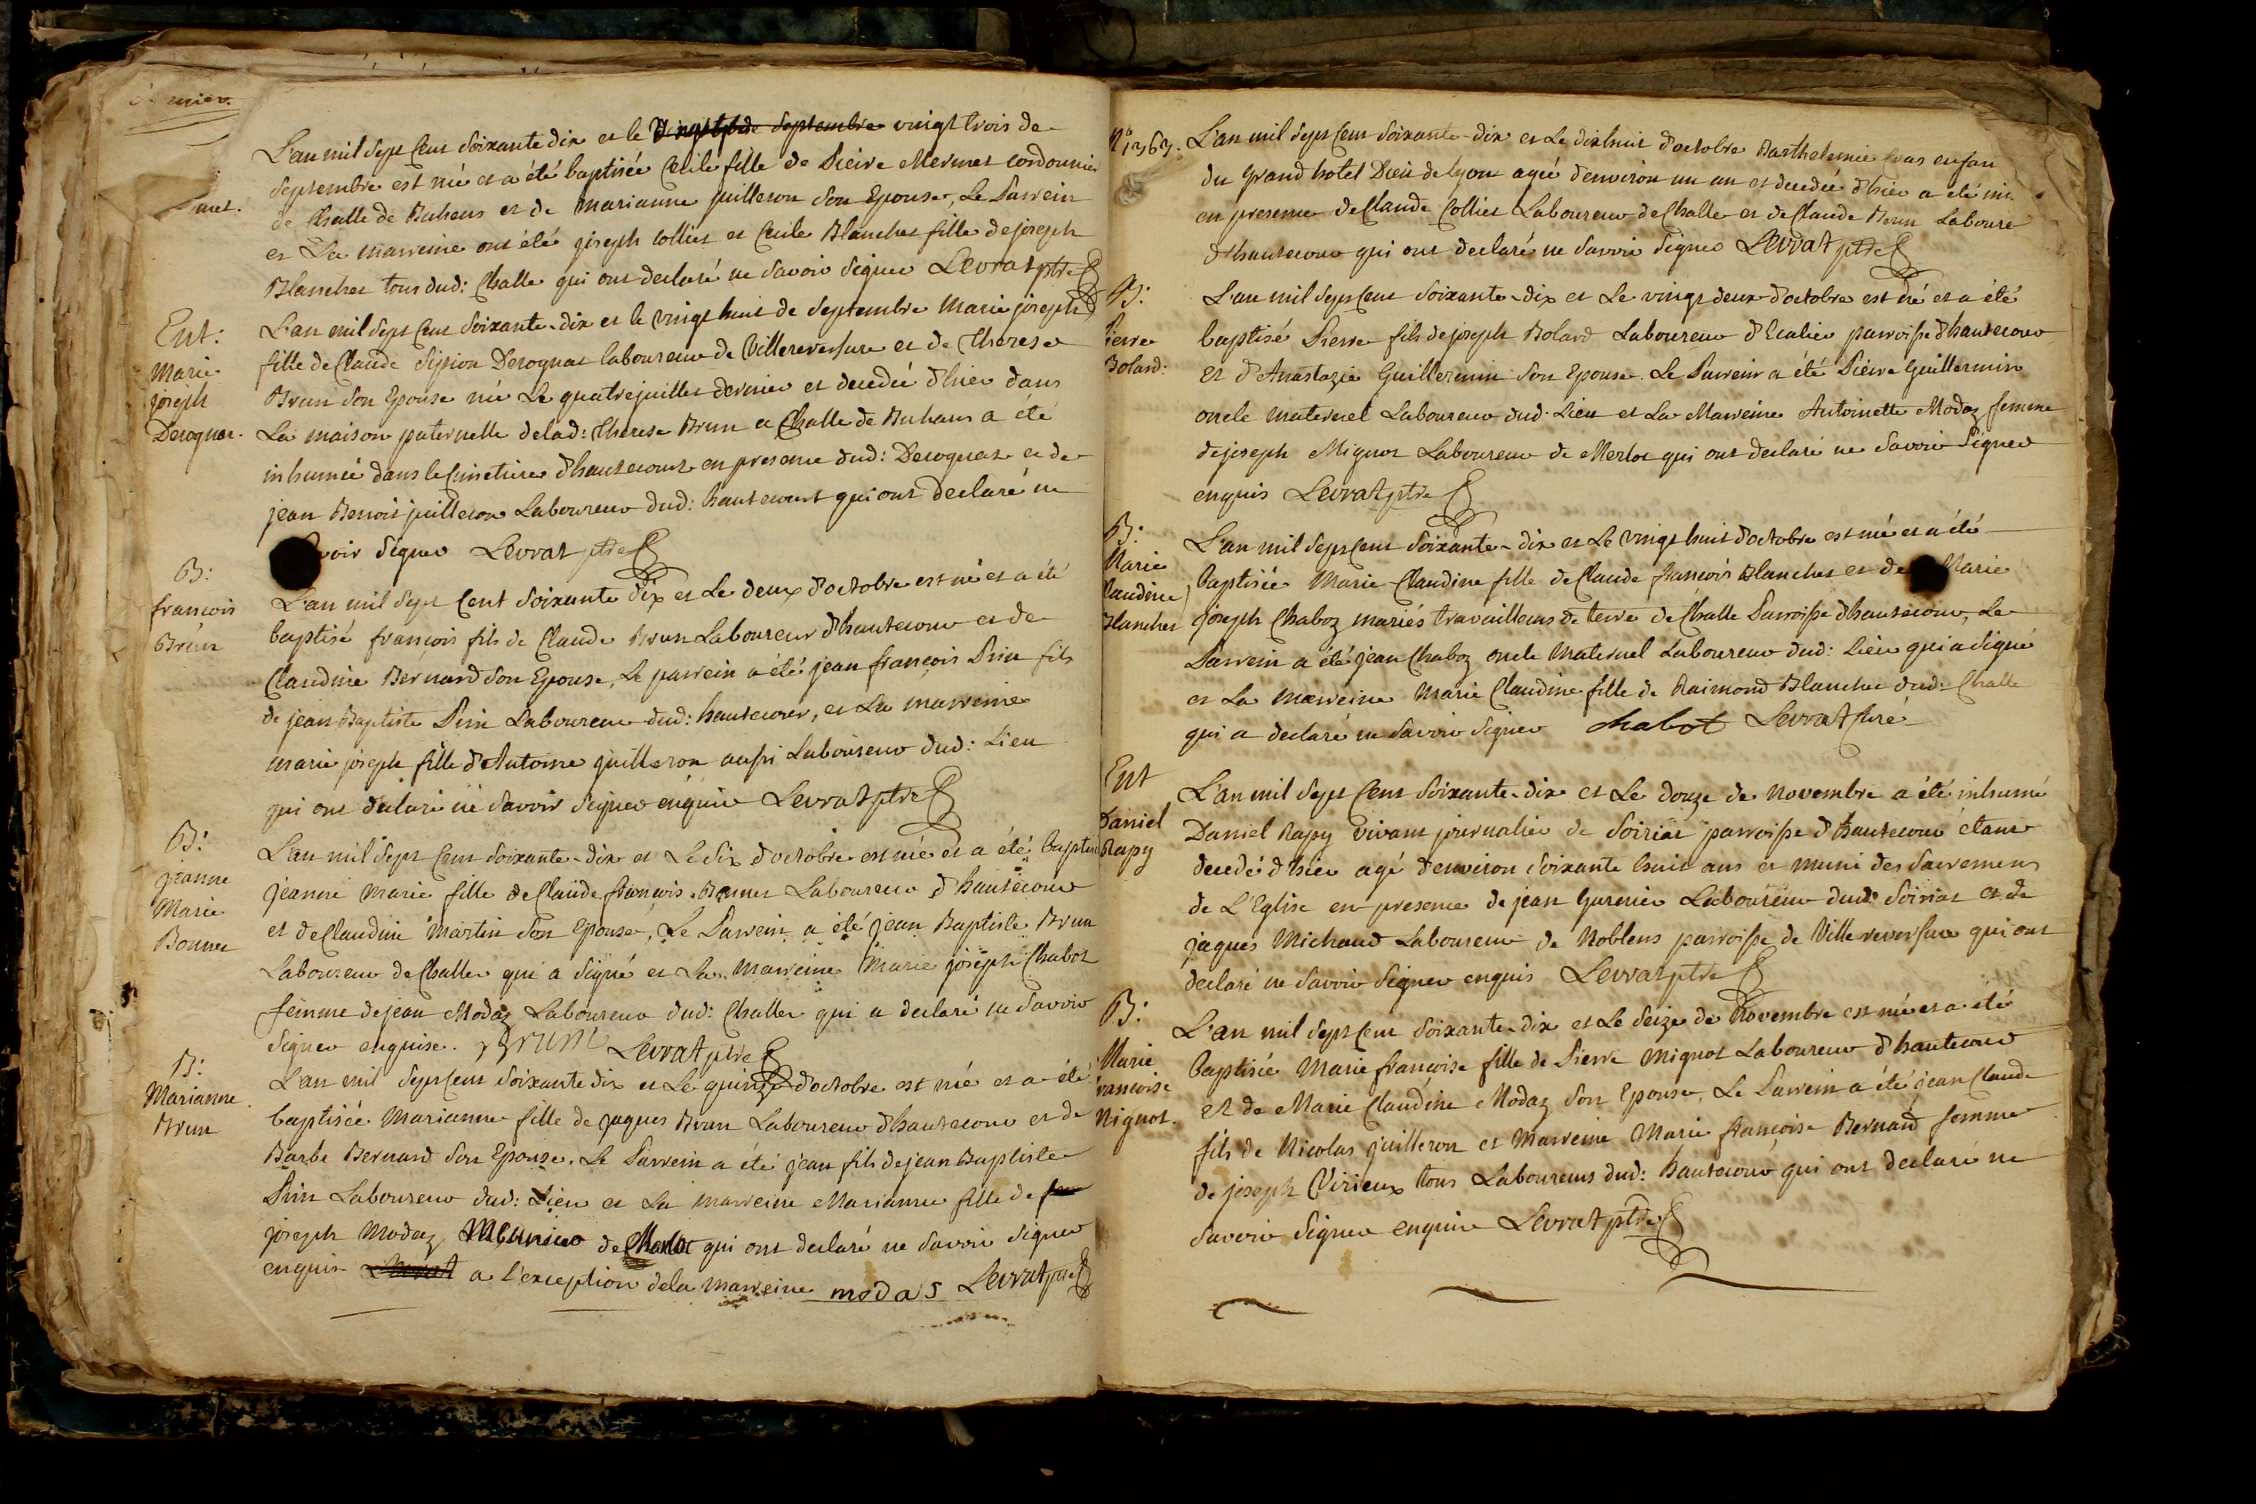 L'an mil Sept Cent Soixante dix et le vingt trois de
Septembre est née et a été baptisée Cecile fille de Pierre Mermet cordonnier
met.
de Challe de Buhens et de marianne juilleron Son Epouse, Le Parrein
et La marreine ont été joseph Colliet et Cecile Blanchet fille de joseph
Blanchet tous dud: Challe qui ont declaré ne Savoir Signer Levrat ptre
Ent:
Marie
joseph
Derognat.
L'an mil Sept Cent Soixante-dix et le vingt huit de Septembre Marie joseph
fille de Claude Derognat laboureur de Villereversure et de Therese
Brun Son Epouse née Le quatre juillet dernier et decedée d'hier dans
La maison paternelle delad: Therese Brun a Challe de Buhans a été
inhumée dans le Cimetiere d'hautecourt en presence dud: Derognat et de
jean Benoit juilleron Laboureur dud: hautecourt qui ont declaré ne
voir Signer Levrat ptre
B:
francois
Brun
L'an mil Sept Cent Soixante dix et Le deux d'octobre est né et a été
baptisé françois fils de Claude Brun Laboureur d'hautecour et de
Claudine Bernard Son Epouse, Le parrein a été jean françois Puin fils
de jean Baptiste Puin Laboureur dud: hautecour, et La marreine
marie joseph fille d'Antoine juilleron aussi Laboureur dud: Lieu
qui ont declaré ne Savoir Signer enquis Levrat ptre
B:
jeanne
Marie
Bonnet
L'an mil Sept Cent Soixante-dix et Le Six d'octobre est née et a été baptisée
jeanne Marie fille de Claude françois Bonnet Laboureur d'hautecour
et de Claudine Martin Son Epouse, Le Parrein a été jean Baptiste Brun
Laboureur de Challe qui a Signé et La Marreine Marie joseph Chabot
femme de jean Modaz Laboureur dud: Challe qui a declaré ne Savoir
Signer enquise. Brun Levrat ptre
B:
Marianne
Brun
L'an mil Sept Cent Soixante dix et Le quinze d'octobre est née et a été
baptisée Marianne fille de jaques Brun Laboureur d'hautecour et de
Barbe Bernard Son Epouse. Le Parrein a été jean fils de jean Baptiste
Puin Laboureur dud: Lieu et La marreine Marianne fille de
joseph Modaz Meunier de Merlot qui ont declaré ne Savoir Signer
enquis a l'exception de la Marreine modas Levrat ptre
L'an mil Sept Cent Soixante-dix et Le dixhuit d'octobre Barthelemie enfan
du Grand hotel Dieu de Lyon agé d'environ un an et decedée d'hier a été in
en presence de Claude Colliet Laboureur de Challe et de Claude Brun Laboure
d'hautecour qui ont declaré ne Savoir Signer Levrat ptre
B:
Pierre
Bolard:
L'an mil Sept Cent Soixante-dix et Le vingt deux d'octobre est né et a été
baptisé Pierre fils de joseph Bolard Laboureur d'Ecalier parroisse d'hautecour
et d'Anastazie Guillermin Son Epouse. Le Parrein a été Pierre Guillermin
oncle maternel Laboureur dud. Lieu et La Marreine Antoinette Modaz femme
de joseph Mignot Laboureur de Merlot qui ont declaré ne Savoir Signer
enquis Levrat ptre
B:
Marie
laudine
Blanchet
L'an mil Sept Cent Soixante-dix et Le vingt huit d'octobre est née et a été
baptisée Marie Claudine fille de Claude françois Blanchet et de Marie
joseph Chaboz mariés travailleurs de terre de Challe Parroisse d'hautecour, Le
Parrein a été jean Chaboz oncle Maternel Laboureur dud: Lieu qui a Signé
et La marreine Marie Claudine fille de Raimond Blanchet dud: Challe
qui a declaré ne Savoir Signer chabot Levrat Curé
Ent
Daniel
Rapy
L'an mil Sept Cent Soixante-dix et Le douze de Novembre a été inhumé
Daniel Rapy vivant journalier de Soiriat parroisse d'hautecour étant
decedé d'hier agé d'environ Soixante huit ans et muni des Sacremens
de L'Eglise en presence de jean Garenier Laboureur dud: Soiriat et de
jaques Michaud Laboureur de Noblens parroisse de Villereversure qui ont
declaré ne Savoir Signer enquis Levrat ptre
B:
Marie
rancoise
Mignot.
L'an mil Sept Cent Soixante-dix et Le Seize de Novembre est née et a été
baptisée Marie françoise fille de Pierre Mignot Laboureur d'hautecour
et de Marie Claudine Modaz Son Epouse. Le Parrein a été jean Claude
fils de Nicolas juilleron et Marreine Marie françoise Bernard femme
de joseph Virieux tous Laboureurs dud: hautecour qui ont declaré ne
Savoir Signer enquis Levrat ptre